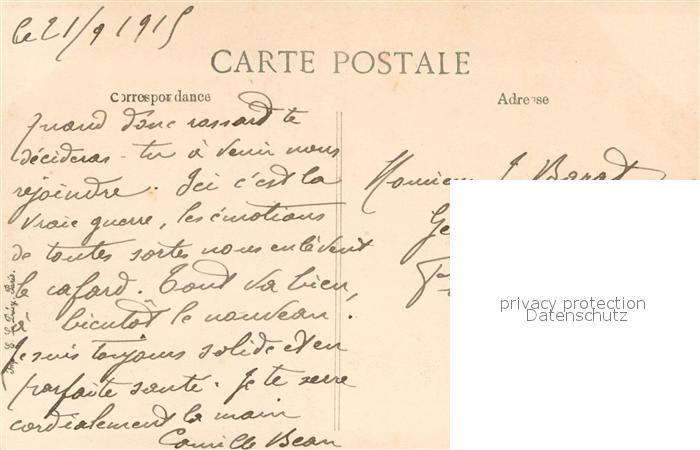 le 21/9 1915
CARTE POSTALE
Correspondance
Adresse
Quand donc rassard te
décideras-tu à venir nous
rejoindre. Ici c'est la
vraie guerre, les émotions
de toutes sortes nous enlèvent
le cafard. Tout va bien,
à bientôt le nouveau.
Je suis toujours solide et en
parfaite santé. Je te serre
cordialement la main
Camille Bean
Monsieur J. Barat
Imp. Paris.
privacy protection
Datenschutz